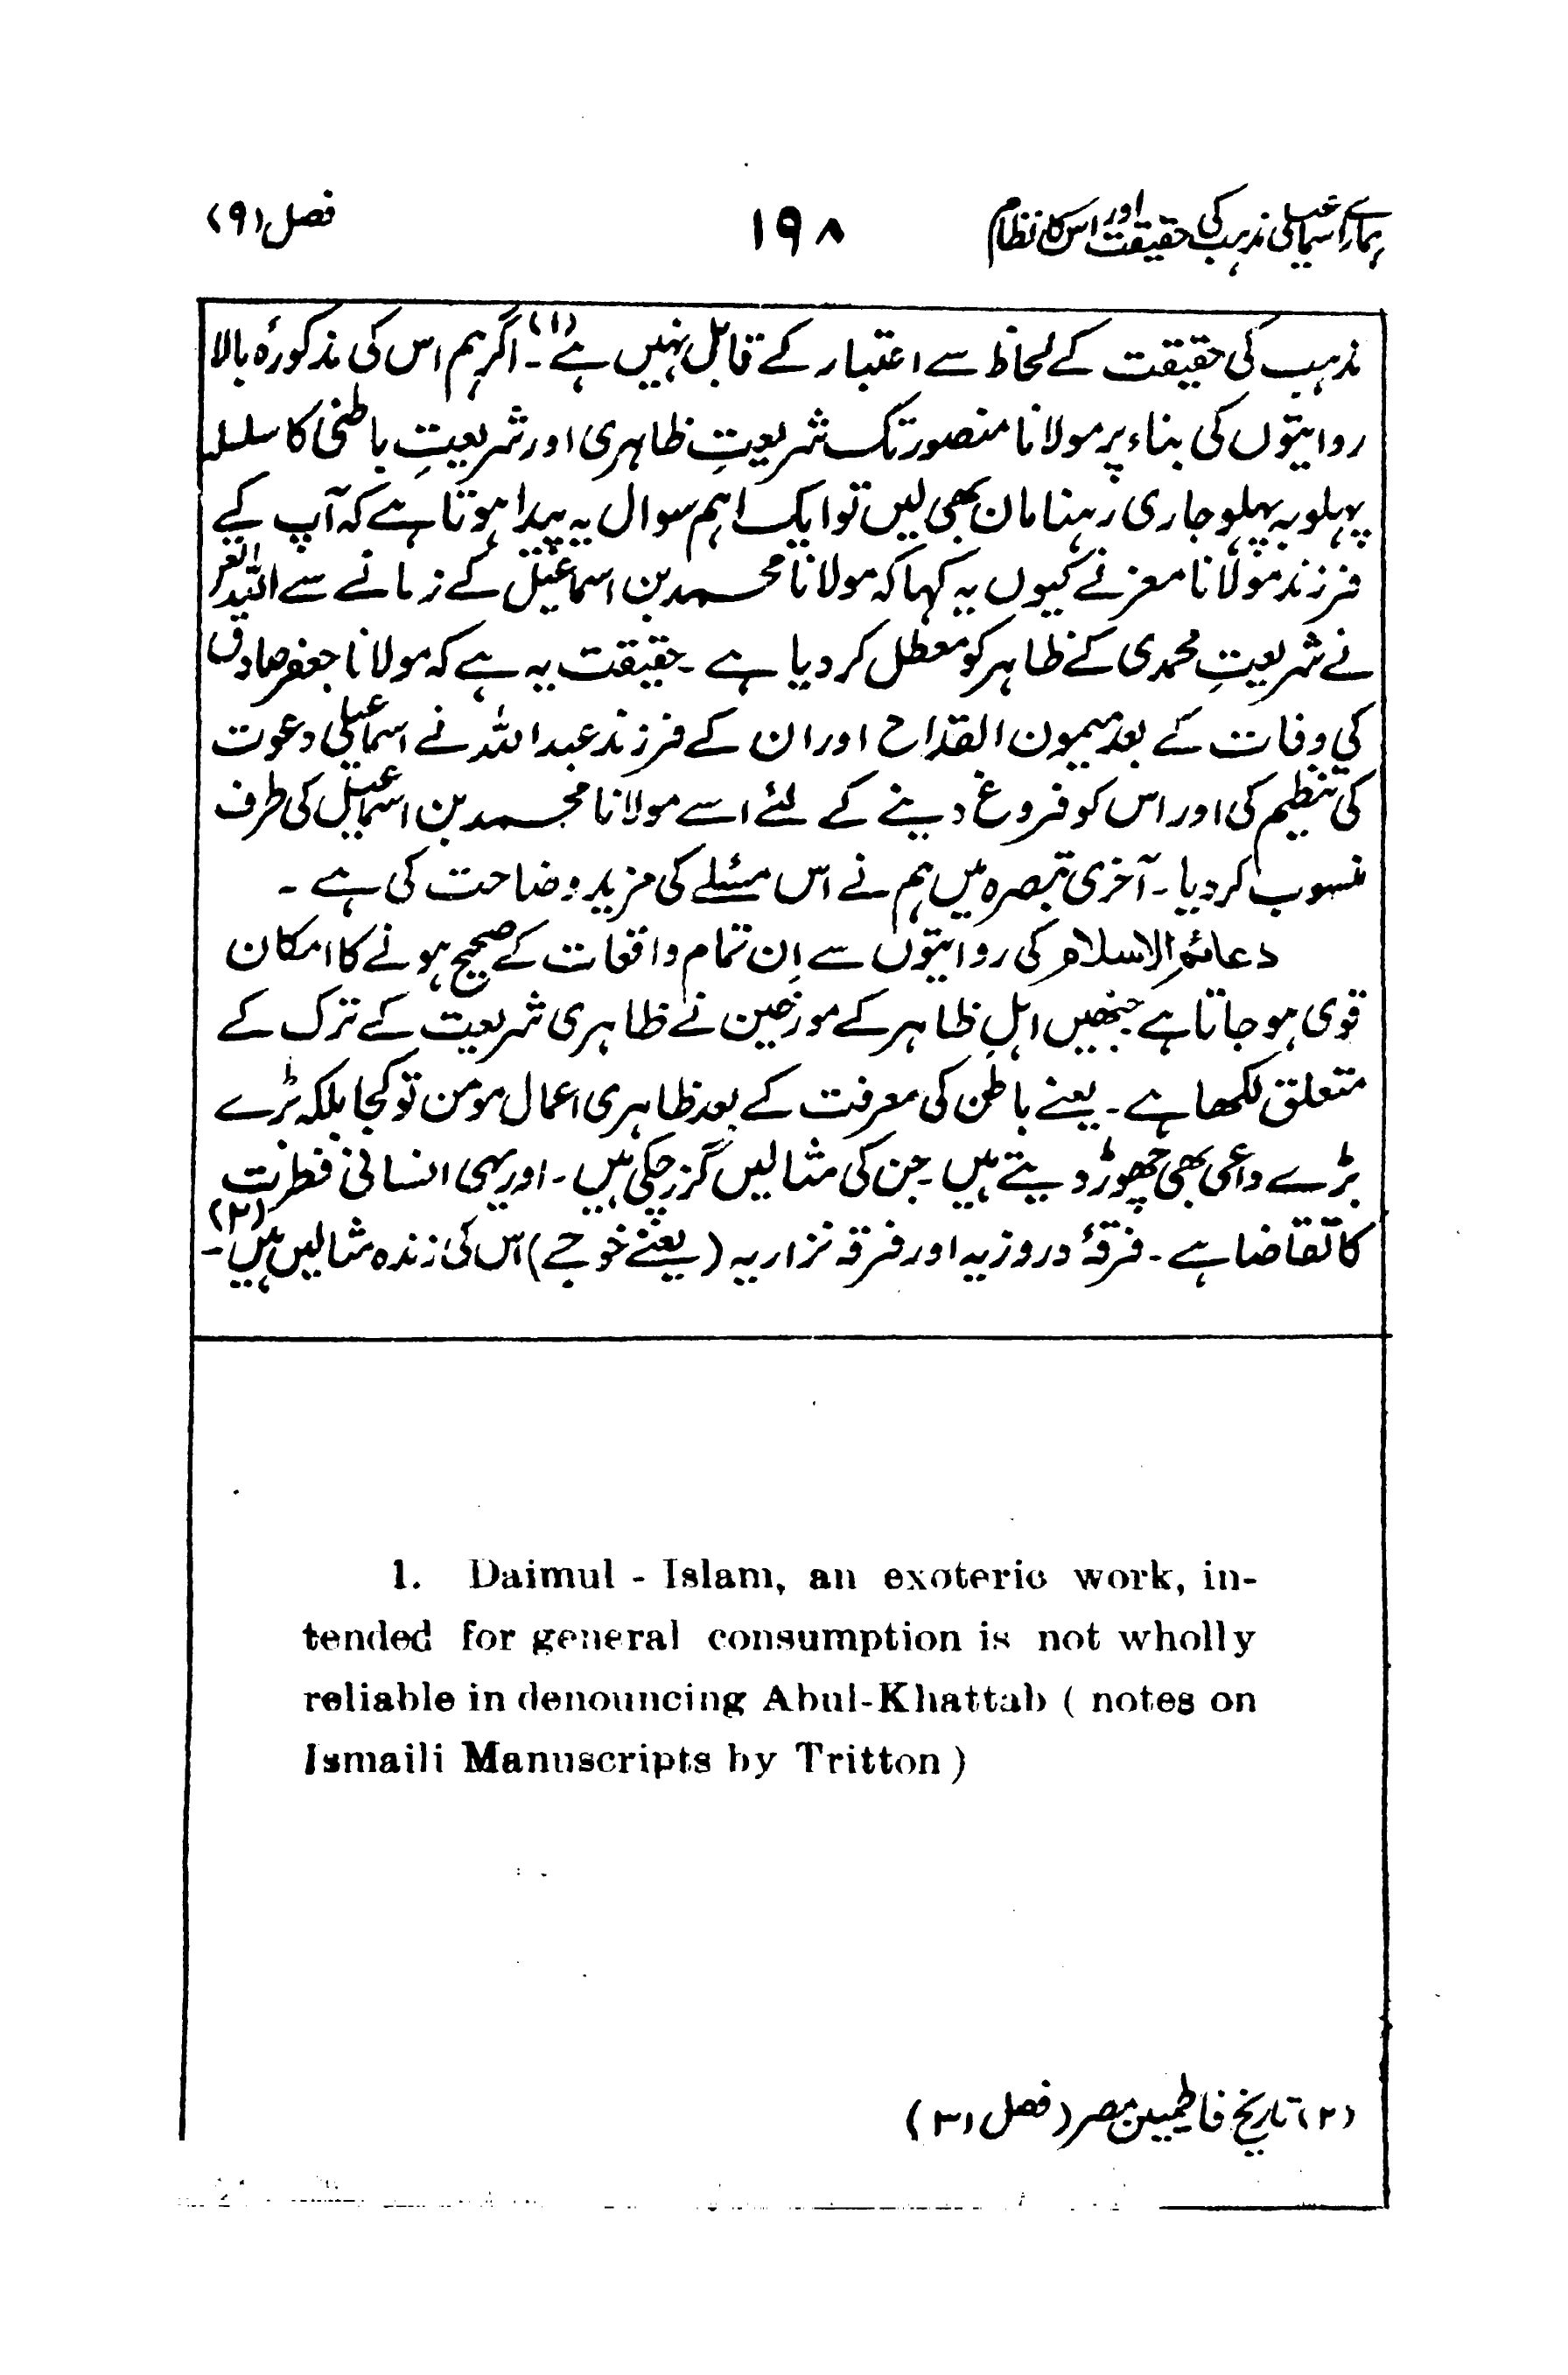 ہمارے اسماعیلی مذہب کی حقیقت اور اس کا نظام
۱۹۸
فصل (۹)
مذہب کی حقیقت کے لحاظ سے اعتبار کے قابل نہیں ہے(۱)۔ اگر ہم اس کی مذکورۂ بالا
روایتوں کی بناء پر مولانا منصور تک شریعتِ ظاہری اور شریعتِ باطنی کا سلسلہ
پہلو بہ پہلو جاری رہنا مان بھی لیں تو ایک اہم سوال یہ پیدا ہوتا ہے کہ آپ کے
فرزند مولانا معز نے کیوں یہ کہا کہ مولانا محمد بن اسماعیل کے زمانے سے اللہ تعالیٰ
نے شریعتِ محمدی کے ظاہر کو معطل کر دیا ہے ۔ حقیقت یہ ہے کہ مولانا جعفر صادق
کی وفات کے بعد میمون القدّاح اور ان کے فرزند عبد اللہ نے اسماعیلی دعوت
کی تنظیم کی اور اس کو فروغ دینے کے لئے اسے مولانا محمد بن اسماعیل کی طرف
منسوب کر دیا ۔ آخری تبصرہ میں ہم نے اس مسئلے کی مزید وضاحت کی ہے ۔
دعائم الاسلام کی روایتوں سے اِن تمام واقعات کے صحیح ہونے کا امکان
قوی ہو جاتا ہے جنھیں اہلِ ظاہر کے مورّخین نے ظاہری شریعت کے ترک کے
متعلق لکھا ہے ۔ یعنے باطن کی معرفت کے بعد ظاہری اعمال مومن تو کجا بلکہ بڑے
بڑے داعی بھی چھوڑ دیتے ہیں ۔ جن کی مثالیں گزر چکی ہیں ۔ اور یہی انسانی فطرت
کا تقاضا ہے ۔ فرقۂ دروزیہ اور فرقہ نزاریہ (یعنے خوجے) اس کی زندہ مثالیں ہیں(۲)۔
1. Daimul - Islam, an exoteric work, in-
tended for general consumption is not wholly
reliable in denouncing Abul-Khattab ( notes on
Ismaili Manuscripts by Tritton )
(۲) تاریخ فاطمیین مصر (فصل ۳۱)